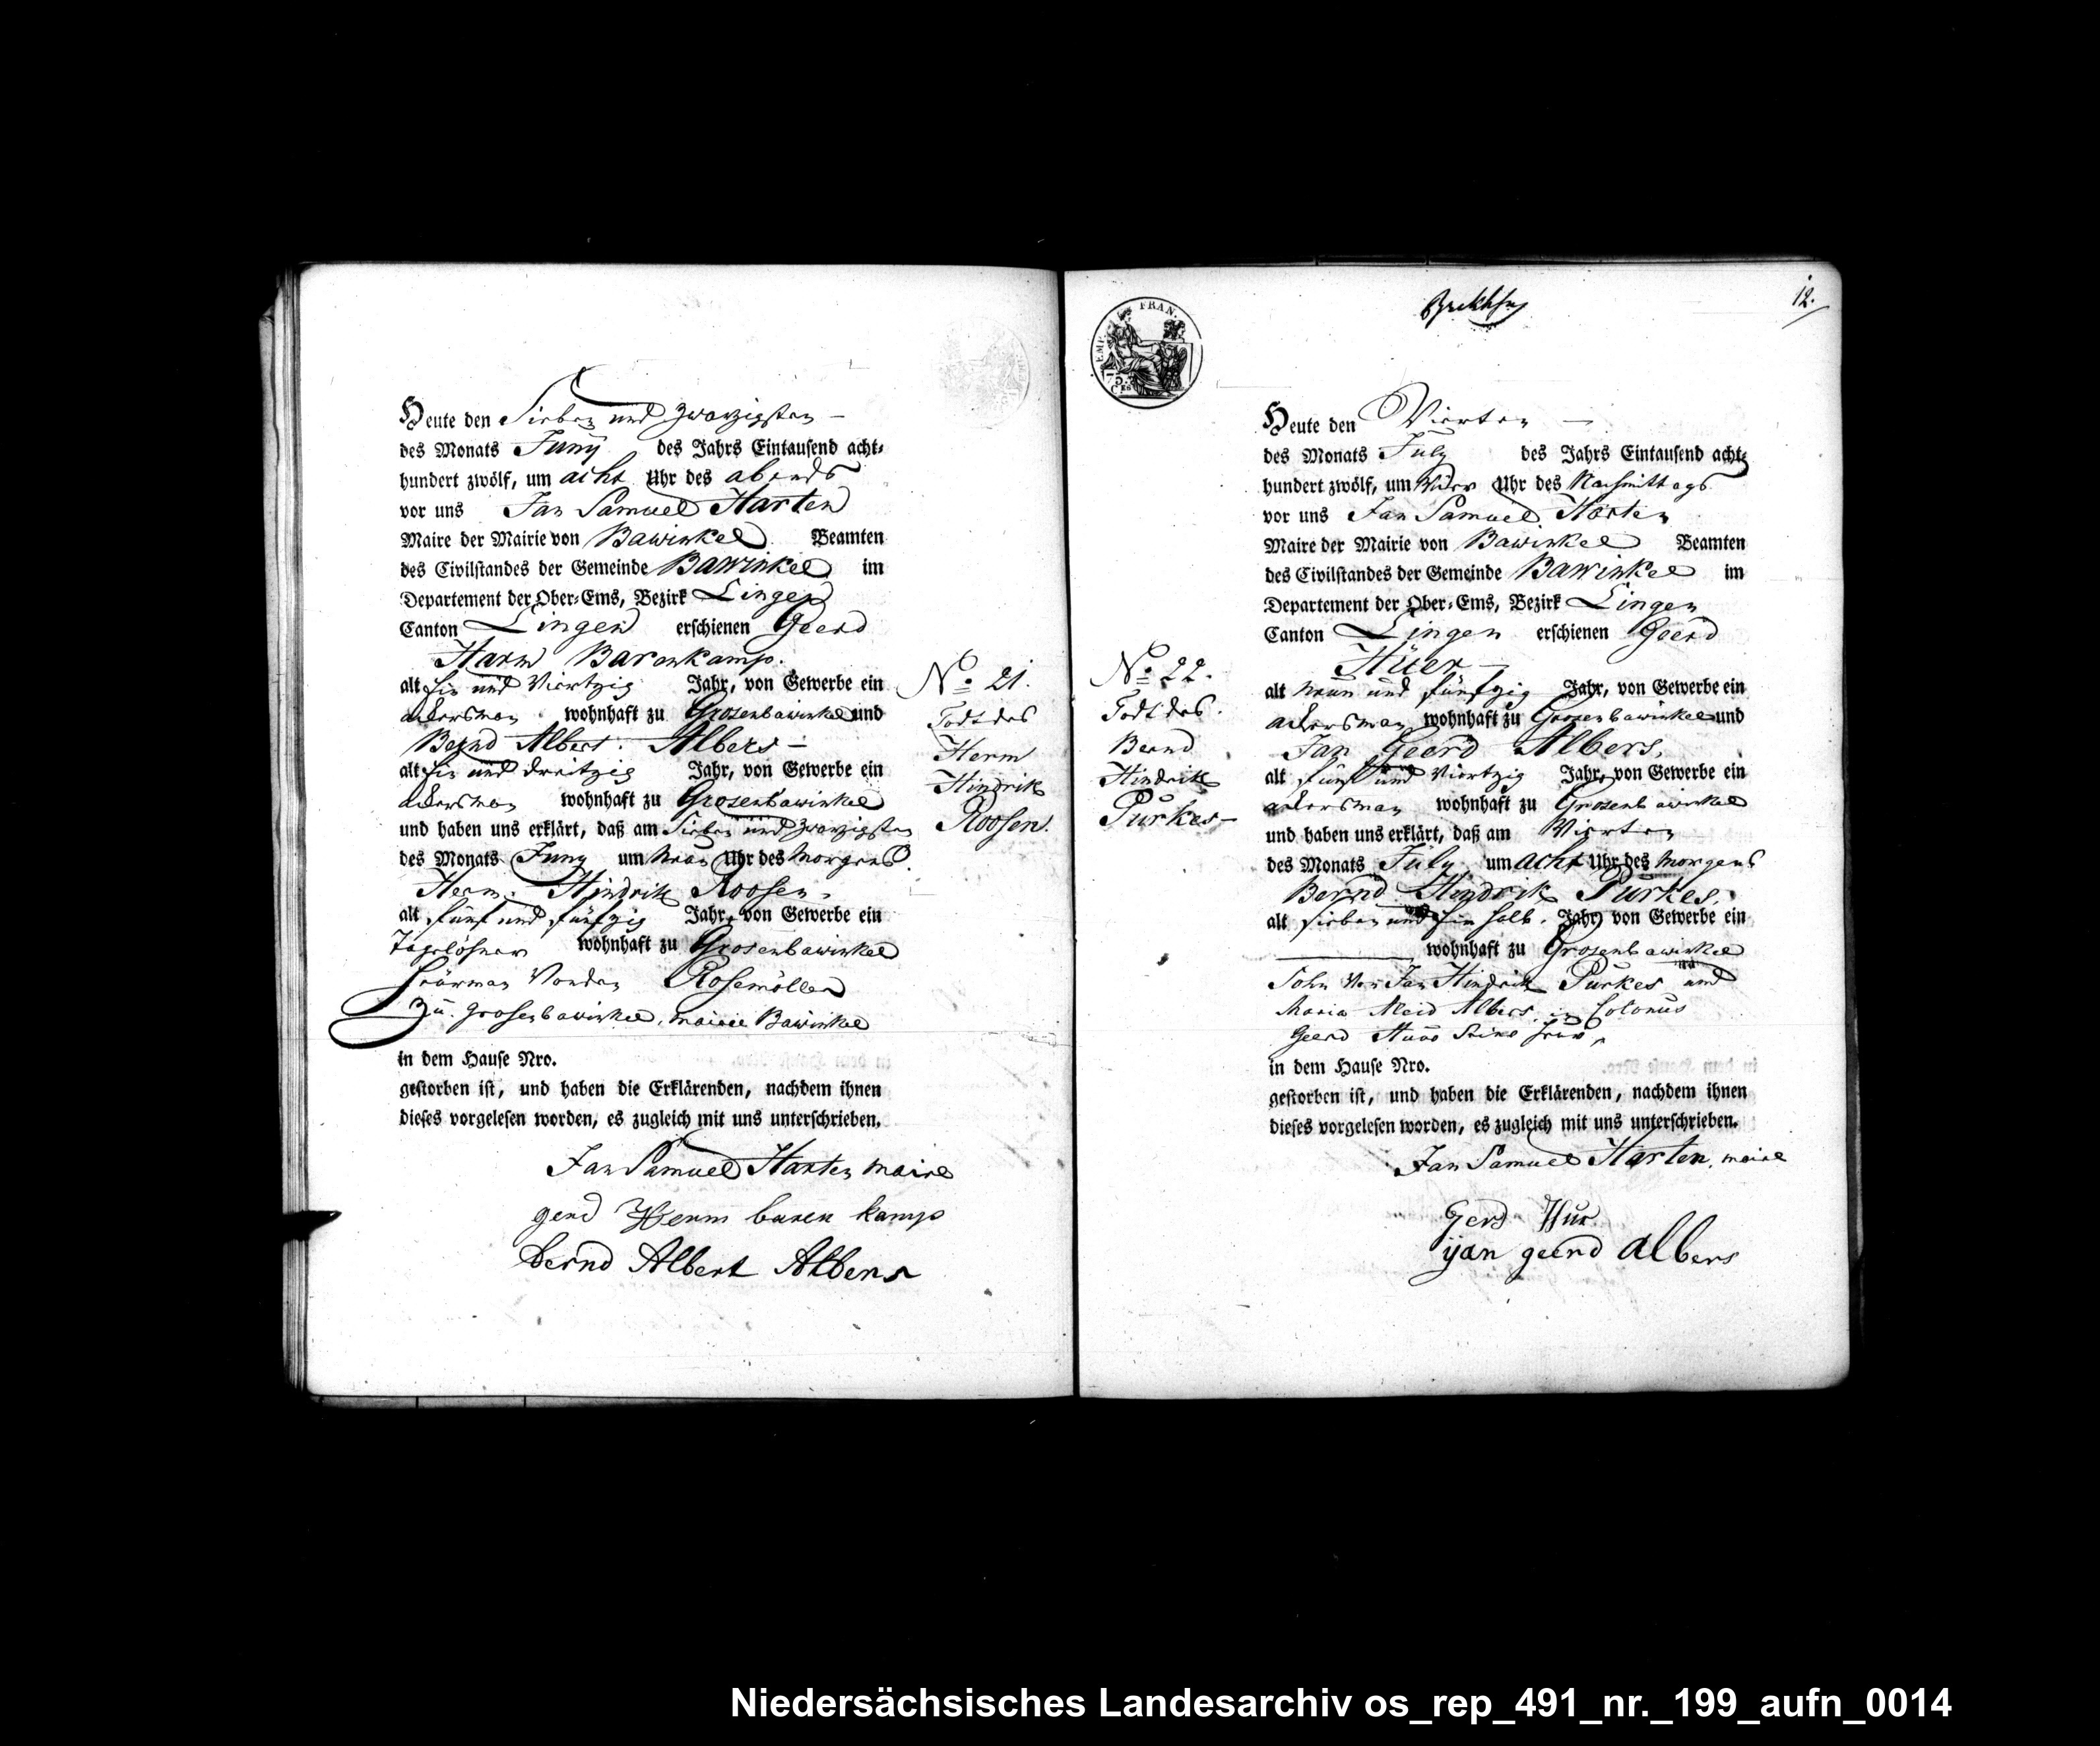 Heute den Sieben und zwanzigsten —
des Monats Juny des Jahrs Eintausend acht-
hundert zwölf, um acht Uhr des abends
vor uns Jan Samuel Harten
Maire der Mairie von Bawinkel Beamten
des Civilstandes der Gemeinde Bawinkel im
Departement der Ober-Ems, Bezirk Lingen
Canton Lingen erschienen Geerd
Harm Barenkamp.
alt ein und Viertzig Jahr, von Gewerbe ein
ackersman wohnhaft zu Grosenbawinkel und
Bernd Albert Albers —
alt ein und dreitzig Jahr, von Gewerbe ein
ackersman wohnhaft zu Grosenbawinkel
und haben uns erklärt, daß am Sieben und zwanzigsten
des Monats Juny um neun Uhr des Morgens
Herm Hindrik Roosen
alt fünf und fünfzig Jahr, von Gewerbe ein
Tagelöhner wohnhaft zu Grosenbawinkel
heürman Von den Rosemöller
Zu Grosenbawinkel, mairie Bawinkel
in dem Hause Nro.
gestorben ist, und haben die Erklärenden, nachdem ihnen
dieses vorgelesen worden, es zugleich mit uns unterschrieben.
Jan Samuel Harten maire
gerd Herm baren kamp
Bernd Albert Albers
No. 21.
Todt des
Herm
Hindrik
Roosen.
EMP. FRAN.
75 C.
12.
No. 22.
Todt des
Bernd
Hindrik
Purkes —
Heute den Vierten —
des Monats July des Jahrs Eintausend acht-
hundert zwölf, um Vier Uhr des Nachmittags
vor uns Jan Samuel Harten
Maire der Mairie von Bawinkel Beamten
des Civilstandes der Gemeinde Bawinkel im
Departement der Ober-Ems, Bezirk Lingen
Canton Lingen erschienen Geerd
Hüer —
alt neun und fünfzig Jahr, von Gewerbe ein
ackersman wohnhaft zu Grosenbawinkel und
Jan Geerd Albers,
alt fünf und Viertzig Jahr, von Gewerbe ein
ackersman wohnhaft zu Grosenbawinkel
und haben uns erklärt, daß am Vierten
des Monats July um acht Uhr des Morgens
Bernd Hindrik Purkes,
alt sieben und ein halb Jahr, von Gewerbe ein
wohnhaft zu Grosenbawinkel
Sohn Von Jan Hindrik Purkes und
Maria Aleid Albers in Colonus
Geerd
in dem Hause Nro.
gestorben ist, und haben die Erklärenden, nachdem ihnen
dieses vorgelesen worden, es zugleich mit uns unterschrieben.
Jan Samuel Harten, maire
Gerd Hür
ijan geerd Albers
Niedersächsisches Landesarchiv os_rep_491_nr._199_aufn_0014